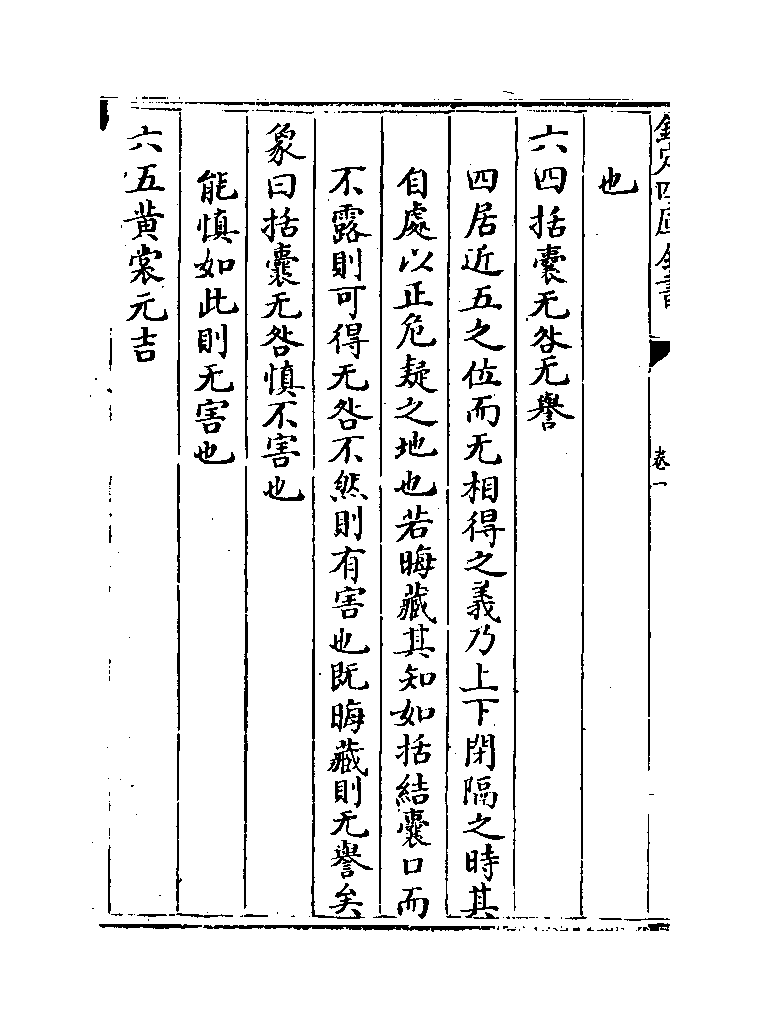 欽定四庫全書
卷一
也
六四括囊无咎无譽
四居近五之位而无相得之義乃上下閉隔之時其
自處以正危疑之地也若晦藏其知如括結囊口而
不露則可得无咎不然則有害也既晦藏則无譽矣
象曰括囊无咎慎不害也
能慎如此則无害也
六五黄裳元吉